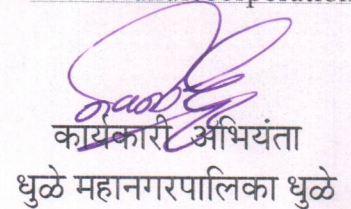 कार्यकारी अभियंता
धुळे महानगरपालिका धुळे